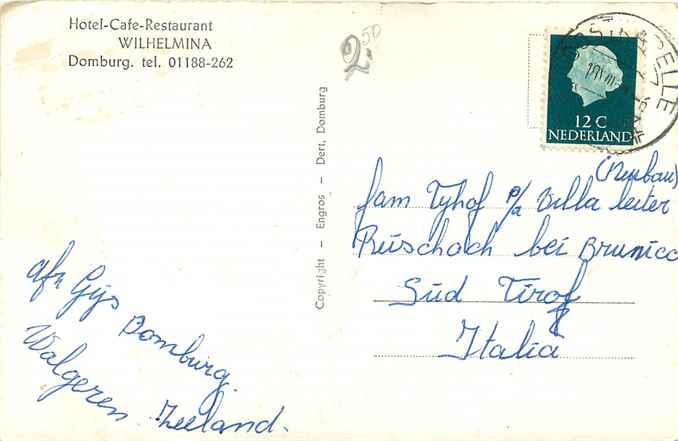 Hotel-Cafe-Restaurant
WILHELMINA
Domburg. tel. 01188-262
2.50
12 C
NEDERLAND
Copyright - Engros - Dert, Domburg
(Neubau)
fam Tyhof p/a Villa leiter
Reischach bei Brunico
Süd Tirol
Italia
afz Gijs
Domburg.
Walgeren. Zeeland.